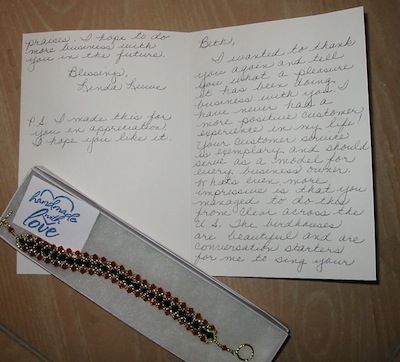 Beth,
I wanted to thank
you again and tell
you what a pleasure
it has been doing
business with you. I
have never had a
more positive customer
experience in my life!
Your customer service
is exemplary and should
serve as a model for
every business owner.
Whats even more
impressive is that you
managed to do this
from clear across the
U.S. The birdhouses
are beautiful and are
conversation starters
for me to sing your
praises. I hope to do
more business with
you in the future.
Blessing,
Linda
P.S. I made this for
you in appreciation.
I hope you like it.
handmade
with
love